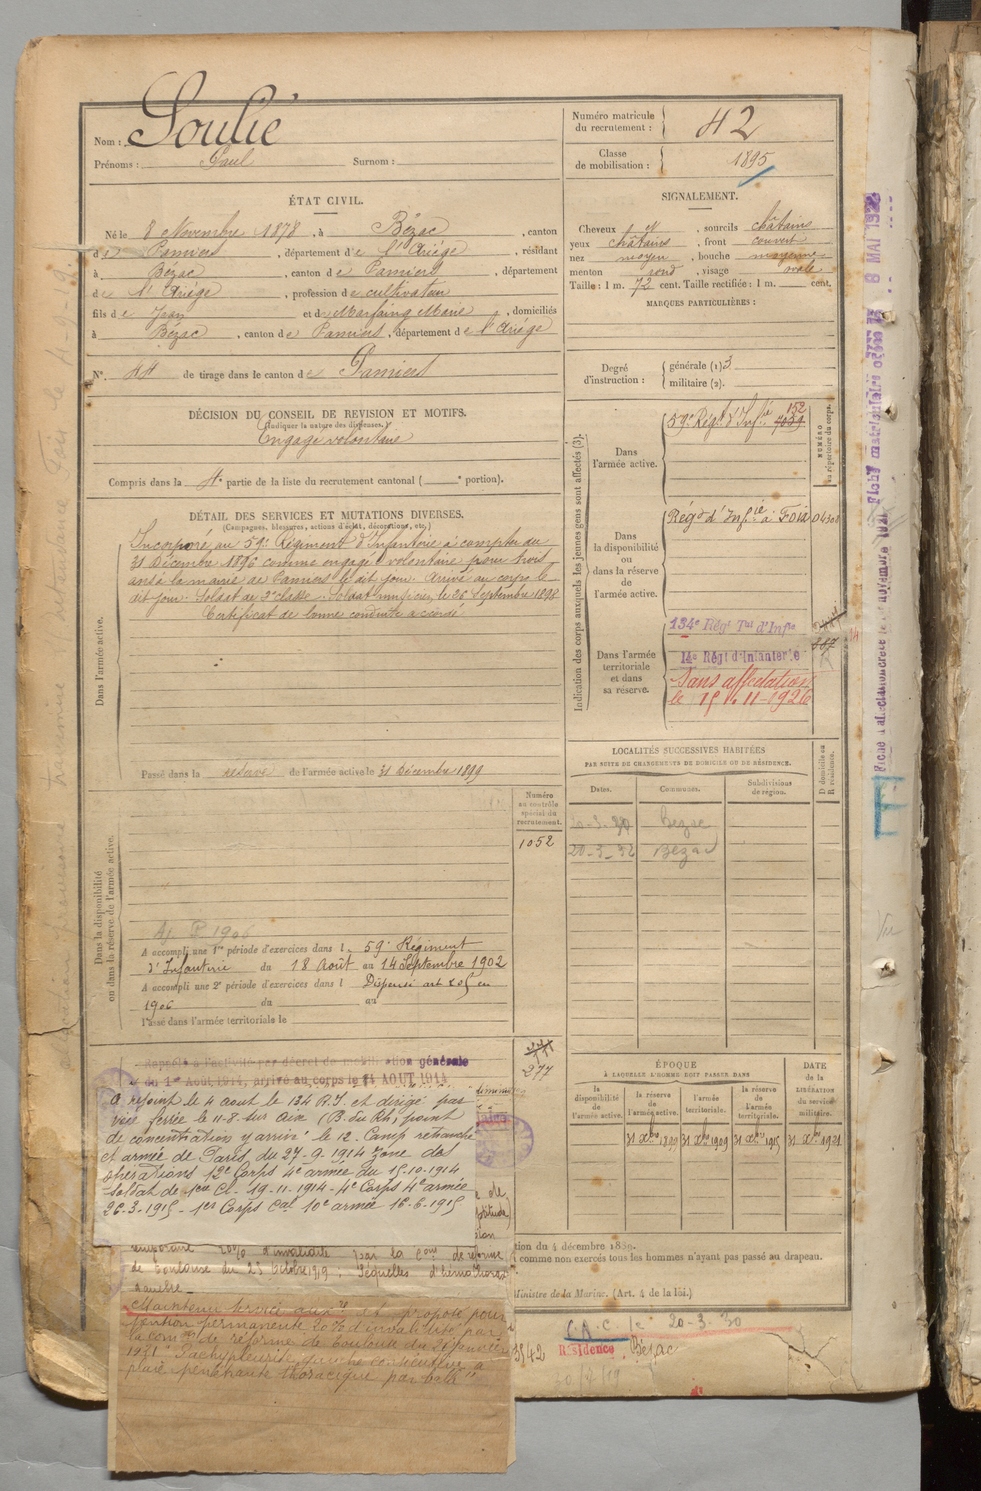 Nom : Soulié
Prénoms : Paul Surnom :
Numéro matricule du recrutement : 42
Classe de mobilisation : 1895
ÉTAT CIVIL.
Né le 8 Novembre 1878, à Bézac, canton
de Pamiers, département de l'Ariége, résidant
à Bézac, canton de Pamiers, département
de l'Ariége, profession de cultivateur
fils de Jean et de Marfaing Marie, domiciliés
à Bézac, canton de Pamiers, département de l'Ariége
N° 44 de tirage dans le canton de Pamiers
SIGNALEMENT.
Cheveux et, sourcils châtains
yeux châtains, front couvert
nez moyen, bouche moyenne
menton rond, visage ovale
Taille : 1 m. 72 cent. Taille rectifiée : 1 m. cent.
MARQUES PARTICULIÈRES :
Degré d'instruction : générale (1) 3
militaire (2).
DÉCISION DU CONSEIL DE REVISION ET MOTIFS.
(Indiquer la nature des dispenses.)
Engagé volontaire
Compris dans la 4e partie de la liste du recrutement cantonal ( e portion).
DÉTAIL DES SERVICES ET MUTATIONS DIVERSES.
(Campagnes, blessures, actions d'éclat, décorations, etc.)
Dans l'armée active.
Incorporé au 59e Régiment d'Infanterie à compter du
31 Décembre 1896 comme engagé volontaire pour trois
ans à la mairie de Pamiers le dit jour. Arrivé au corps le
dit jour. Soldat de 2e classe. Soldat musicien le 26 Septembre 1898
Certificat de bonne conduite accordé
Passé dans la réserve de l'armée active le 31 Décembre 1899
Indication des corps auxquels les jeunes gens sont affectés (3).
NUMÉRO au répertoire du corps.
Dans l'armée active.
59e Régt d'Infie 152
Dans la disponibilité ou dans la réserve de l'armée active.
Régt d'Infie à Foix 04308
Dans l'armée territoriale et dans sa réserve.
134e Régt Tal d'Infie
14e Régt d'Infanterie
Sans affectation
le 15-11-1926
387
LOCALITÉS SUCCESSIVES HABITÉES
PAR SUITE DE CHANGEMENTS DE DOMICILE OU DE RÉSIDENCE.
Dates. Communes. Subdivisions de région. D domicile ou R résidence.
20-3-30 Bezac
20-3-32 Bezac
Numéro au contrôle spécial du recrutement.
1052
Dans la disponibilité ou dans la réserve de l'armée active.
Aj. P 1906
A accompli une 1re période d'exercices dans l 59e Régiment
d'Infanterie du 18 Août au 14 Septembre 1902
A accompli une 2e période d'exercices dans l Dispensé art 205 en
1906 du au
Passé dans l'armée territoriale le
277
Rappelé à l'activité par décret de mobilisation générale
du 1er Août 1914, arrivé au corps le 4 AOUT 1914
A rejoint le 4 aout le 134 R.I. et dirigé par
voie ferrée le 11-8 sur Aix (B. du Rh) point
de concentration y arrivé le 12. Camp retranché
et armée de Paris du 27-9-1914 Zone des
opérations 12e Corps 4e armée du 15-10-1914
Soldat de 1ere Cl. 19-11-1914 - 4e Corps 4e armée
26-3-1915 - 1er Corps Cal 10e armée 16-6-1915
temporaire 20% d'invalidité par la Com de réforme
de Toulouse du 23 Octobre 1919 : Séquelles d'hémothorax
gauche
Maintenu service auxre et proposé pour
pension permanente 20% d'invalidité par
la comon de réforme de Toulouse du 21 janvier
1921 "Pachypleurite gauche consécutive à
plaie pénétrante thoracique par balle"
ÉPOQUE
À LAQUELLE L'HOMME DOIT PASSER DANS
la disponibilité de l'armée active.
la réserve de l'armée active.
l'armée territoriale.
la réserve de l'armée territoriale.
DATE de la LIBÉRATION du service militaire.
31 Xbre 1899 31 Xbre 1909 31 Xbre 1915 31 Xbre 1921
tion du 4 décembre 1889.
comme non exercés tous les hommes n'ayant pas passé au drapeau.
Ministre de la Marine. (Art. 4 de la loi.)
C.A.C. le 20-3-30
Résidence Bézac
3842